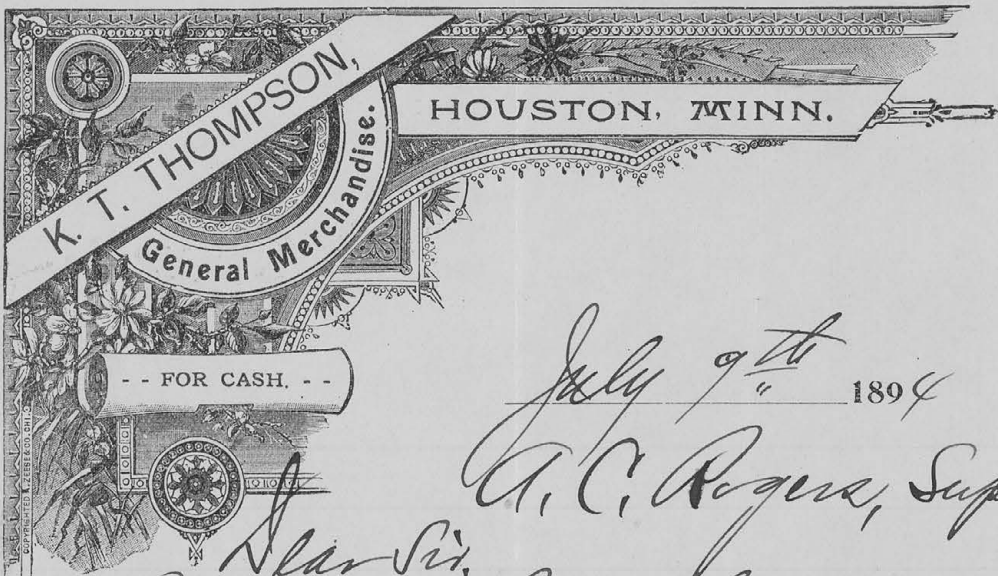 K. T. THOMPSON,
General Merchandise.
HOUSTON, MINN.
- - FOR CASH. - -
July 9th 1894
A. C. Rogers, Sup
Dear Sir,